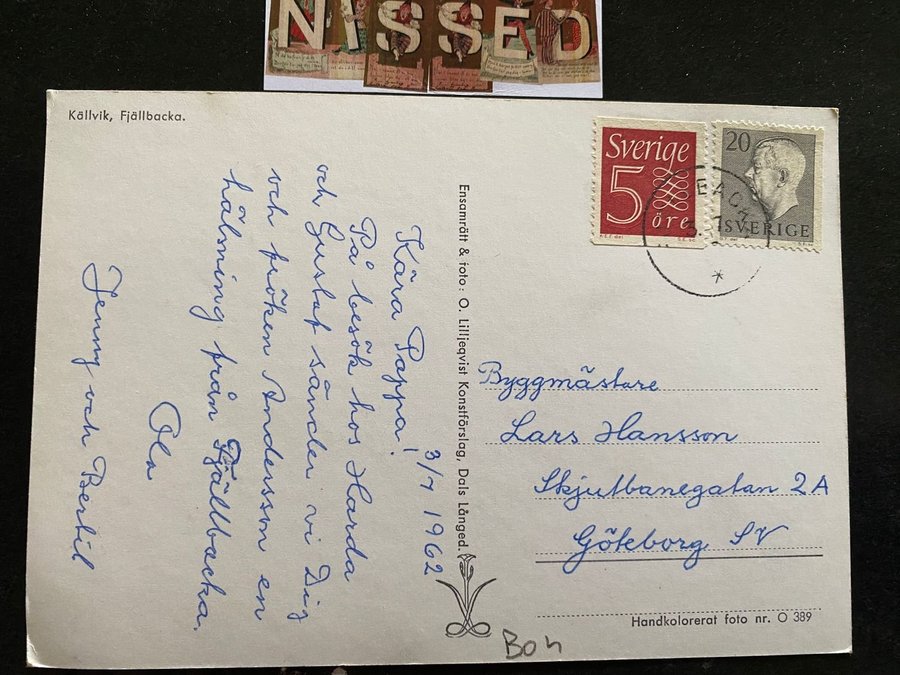 NISSED
Källvik, Fjällbacka.
3/7 1962
Kära Pappa!
På besök hos Harda
och Gustaf sänder vi Dig
och fröken Andersson en
hälsning från Fjällbacka.
Ola
Jenny och Bertil
Ensamrätt & foto: O. Lilljeqvist Konstförslag, Dals Långed.
Sverige
5
öre
20
SVERIGE
Byggmästare
Lars Hansson
Skjutbanegatan 2A
Göteborg SV
Handkolorerat foto nr. O 389
Boh